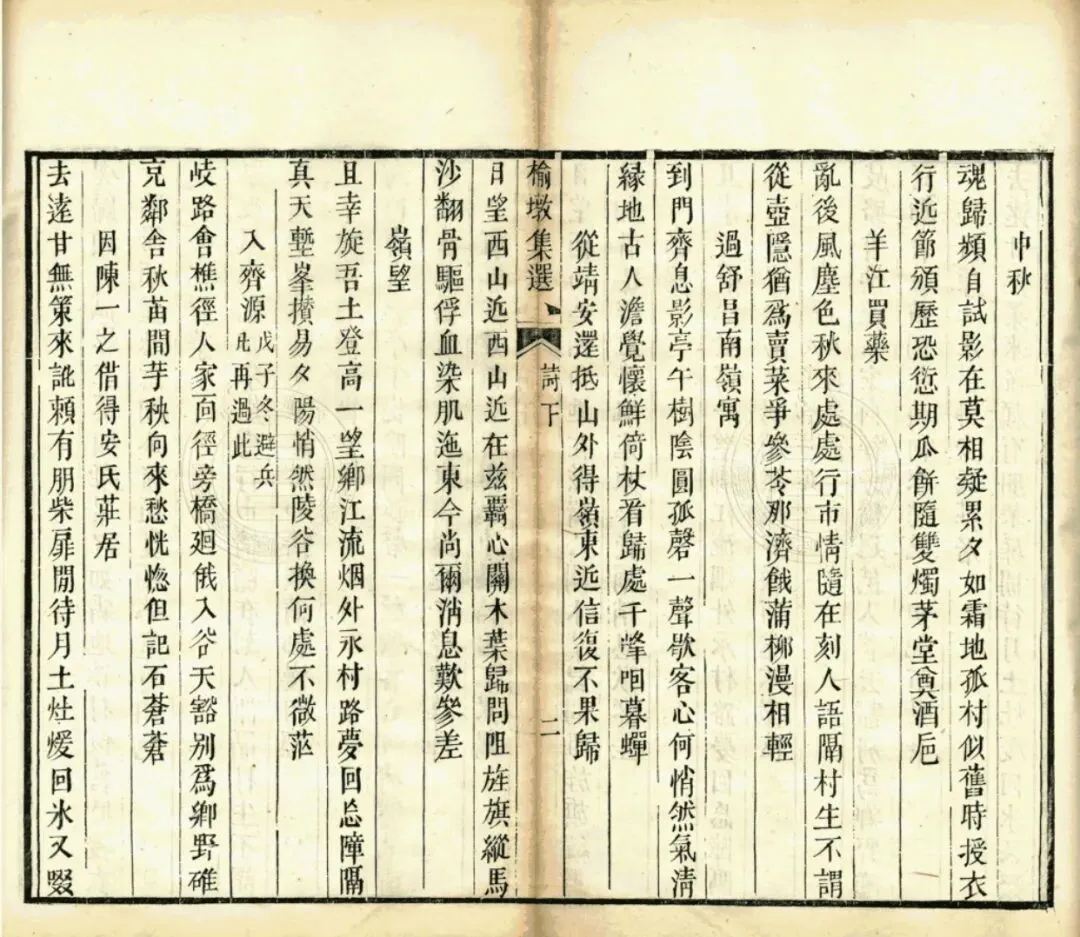 中秋
魂歸頻自試影在莫相疑累夕如霜地孤村似舊時授衣
行近節頒歷恐愆期瓜餅隨雙燭茅堂奠酒卮
羊江買藥
亂後風塵色秋來處處行市情隨在刻人語隔村生不謂
從壺隱猶爲賣菜爭參苓那濟餓蒲柳漫相輕
過舒昌南嶺寓
到門齊息影亭午樹陰圓孤磬一聲歇客心何悄然氣清
緣地古人澹覺懷鮮倚杖看歸處千峰咽暮蟬
從靖安還抵山外得嶺東近信復不果歸
榆墩集選 詩下 二
日望西山近西山近在兹覊心關木葉歸問阻旌旗縱馬
沙翻骨驅俘血染肌迤東今尚爾消息歎參差
嶺望
且幸旋吾土登高一望鄉江流烟外永村路夢回忘障隔
真天塹峯攢易夕陽悄然陵谷換何處不微茫
入齊源戊子冬避兵此再過此
岐路會樵徑人家向徑旁橋廻俄入谷天豁别爲鄉野碓
克鄰舍秋苗間芋秧向來愁恍惚但記石蒼蒼
因陳一之借得安氏莊居
去遠甘無策來訛賴有朋柴扉閒待月土灶煖回氷又啜